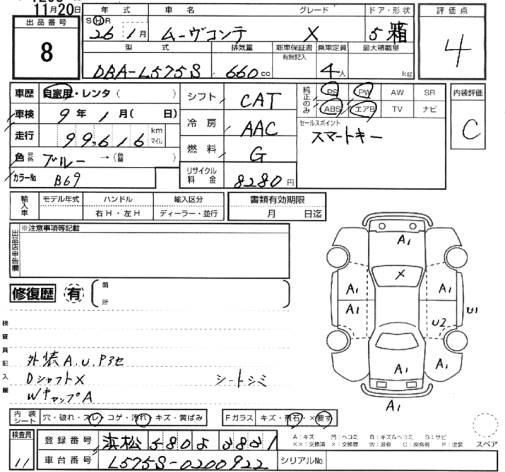 11月20日
出品番号 年式 車名 グレード ドア・形状 評価点
8 SH 26 1月 ムーヴコンテ X 5 箱 4
型式 排気量 新車保証書 有無記入 乗車定員 最大積載量
DBA-L575S 660cc 4人 kg
車歴 自家用・レンタ( ) シフト CAT 純正のみ PS PW AW SR 内装評価
車検 9年1月(日) 冷房 AAC ABS エアB TV ナビ C
走行 99,616 km マイル 燃料 G セールスポイント スマートキー
色 ブルー →( ) リサイクル料金 8280円
カラーNo B69
輸入車 モデル年式 ハンドル 輸入区分 書類有効期限
右H・左H ディーラー・並行 月 日迄
※注意事項等記載
出品店申告欄
修復歴 有 箇所
検査員記入欄
外装A.U.Pヨセ
Dシャフト× シートシミ
WキャップA
A1
X
A1 A1
A1 A1 U1
U2
A1
A1
内装シート 穴・破れ・スレ・コゲ・汚れ・キズ・黄ばみ Fガラス キズ・飛石・X
スペア
検査員 登録番号 浜松 580
11 車台番号 L575S-0200922 シリアルNo